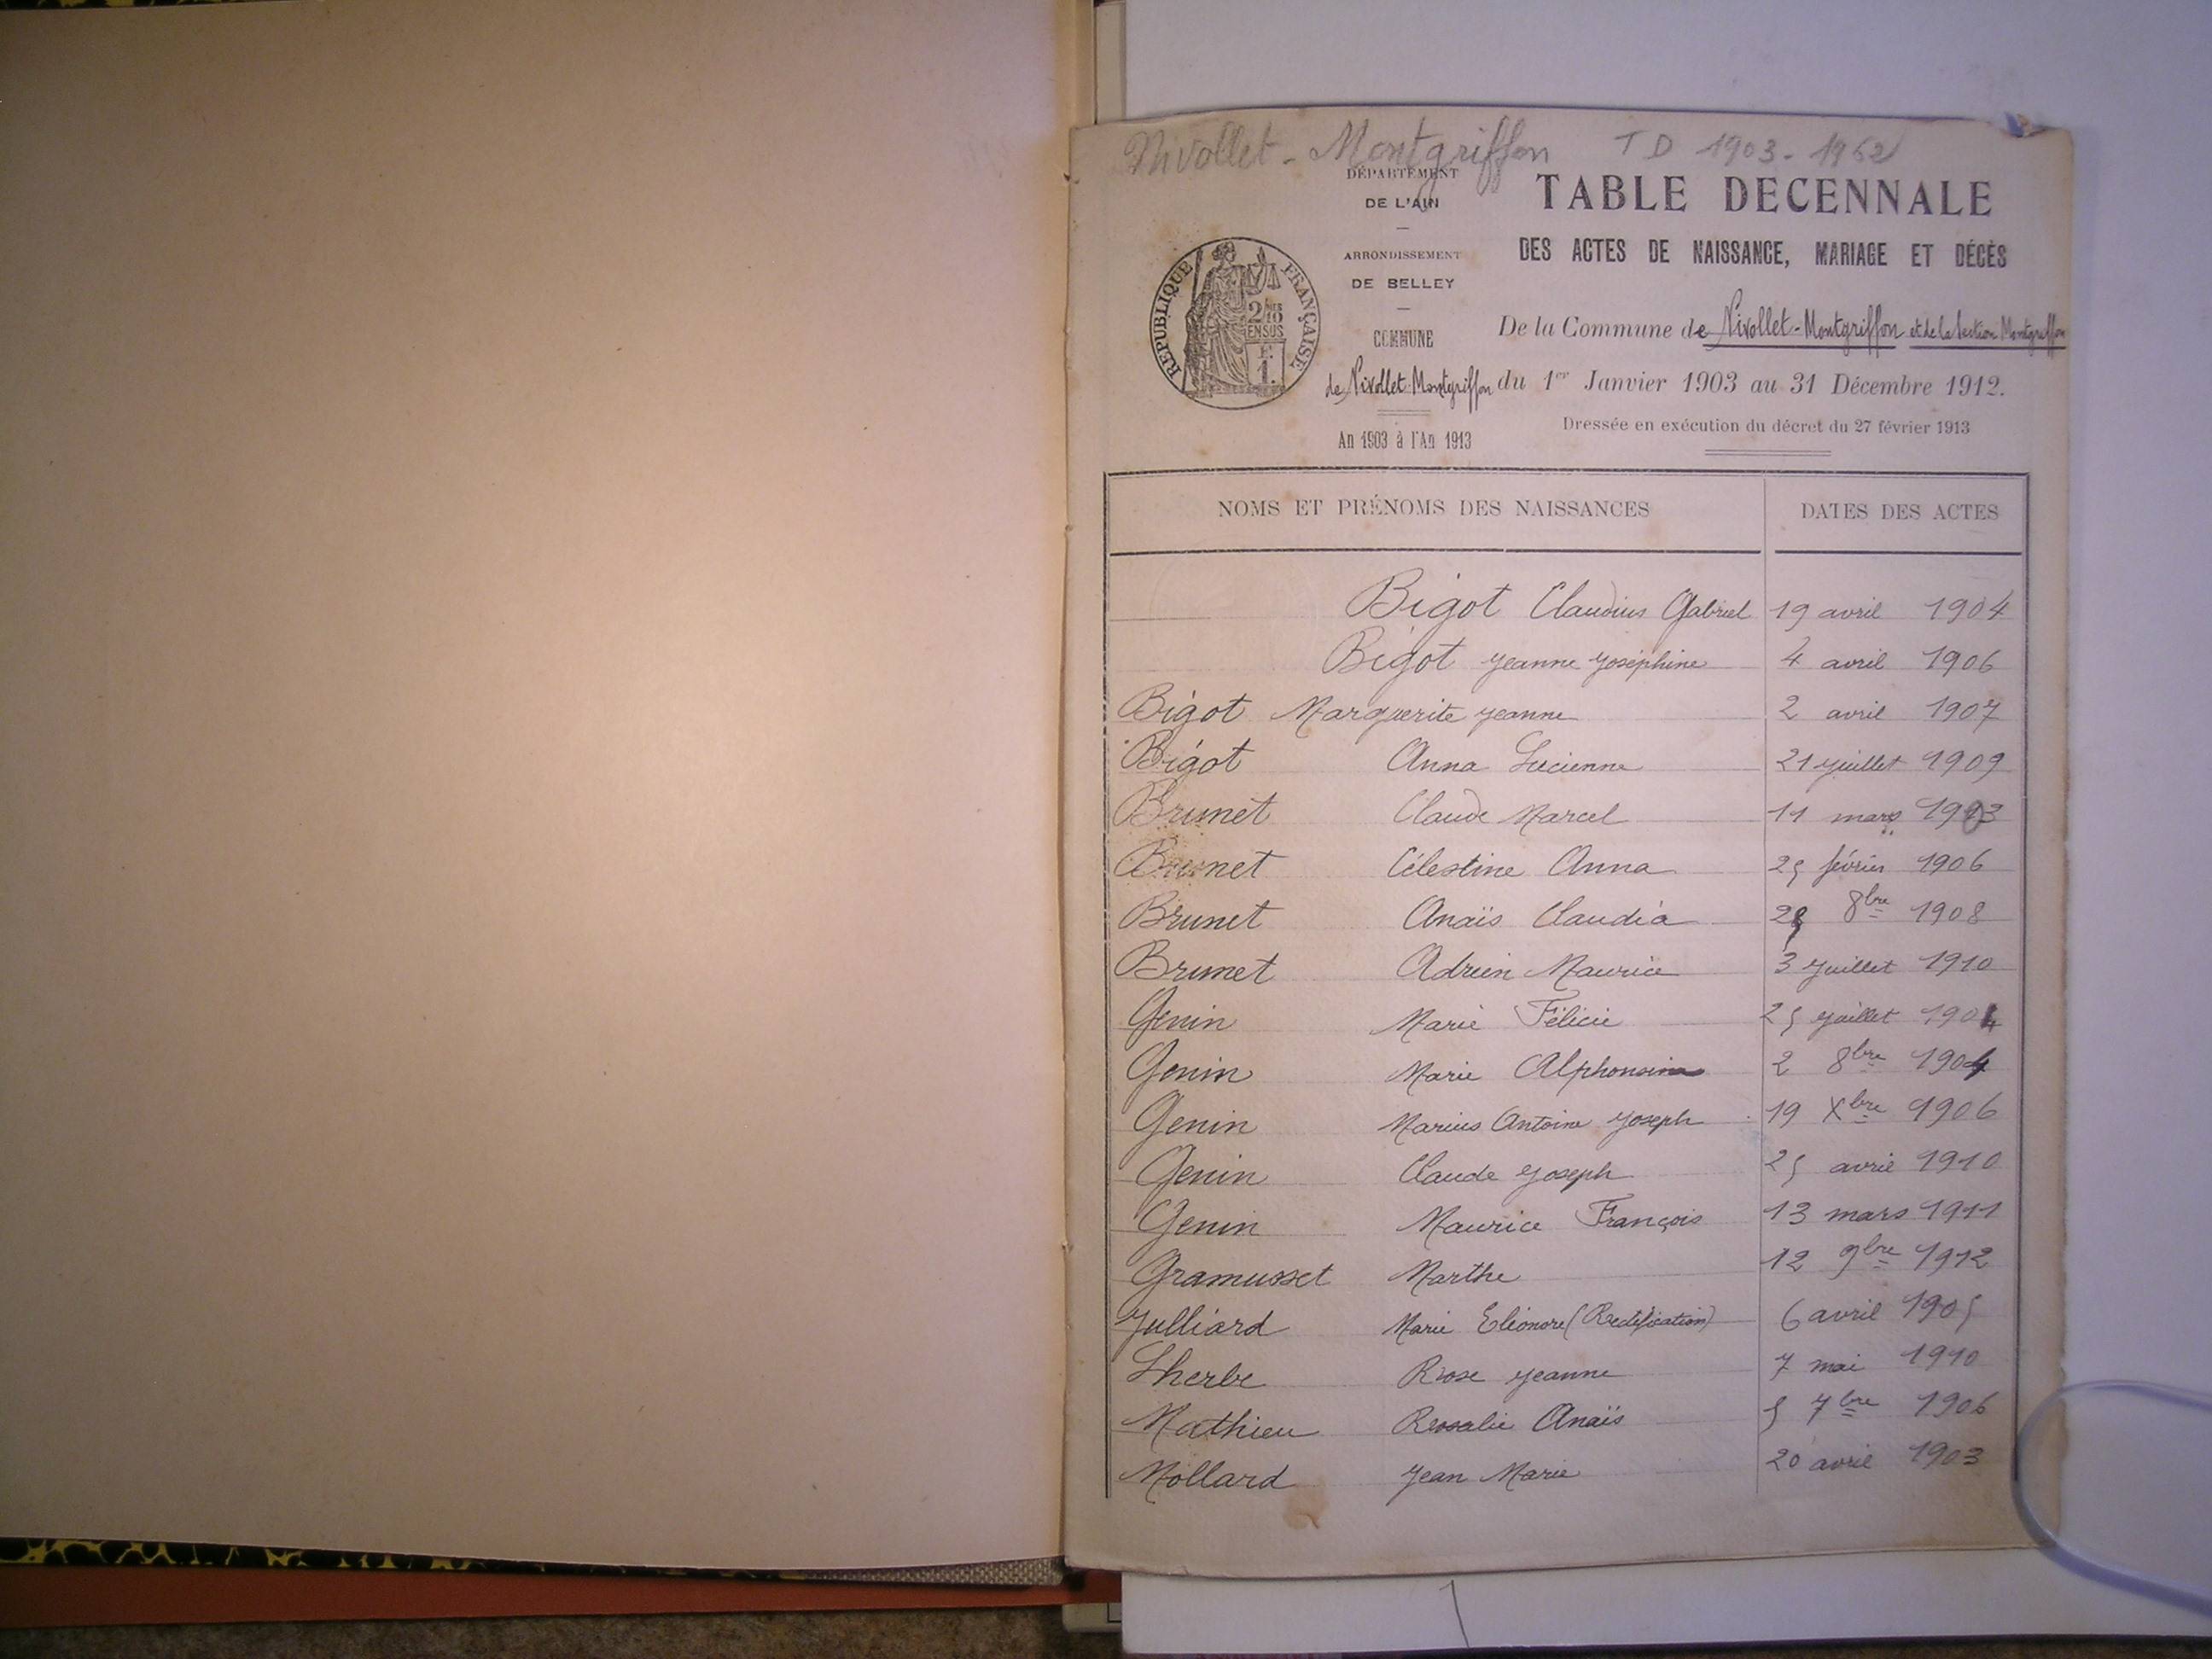 Nivollet - Montgriffon TD 1903-1962
DÉPARTEMENT
DE L'AIN
ARRONDISSEMENT
DE BELLEY
COMMUNE
de Nivollet-Montgriffon
An 1903 à l'An 1913
RÉPUBLIQUE FRANÇAISE
2/10
EN SUS
F.
1.
TABLE DECENNALE
DES ACTES DE NAISSANCE, MARIAGE ET DÉCÈS
De la Commune de Nivollet-Montgriffon et de la Section Montgriffon
du 1er Janvier 1903 au 31 Décembre 1912.
Dressée en exécution du décret du 27 février 1913
NOMS ET PRÉNOMS DES NAISSANCES DATES DES ACTES
Bigot Claudius Gabriel 19 avril 1904
Bigot Jeanne Joséphine 4 avril 1906
Bigot Marguerite Jeanne 2 avril 1907
Bigot Anna Lucienne 21 juillet 1909
Brunet Claude Marcel 11 mars
Brunet Célestine Anna 25 février 1906
Brunet Anaïs Claudia 8bre 1908
Brunet Adrien Maurice 3 juillet 1910
Genin Marie Félicie 25 juillet 1904
Genin Marie Alphonsine 2 8bre 1904
Genin Marius Antoine Joseph 19 Xbre 1906
Genin Claude Joseph 25 avril 1910
Genin Maurice François 13 mars 1911
Gramusset Marthe 12 9bre 1912
Julliard Marie Eléonore (Rectification) 6 avril 1905
Lherbe Rose Jeanne 7 mai 1910
Mathieu Rosalie Anaïs 5 7bre 1906
Mollard Jean Marie 20 avril 1903